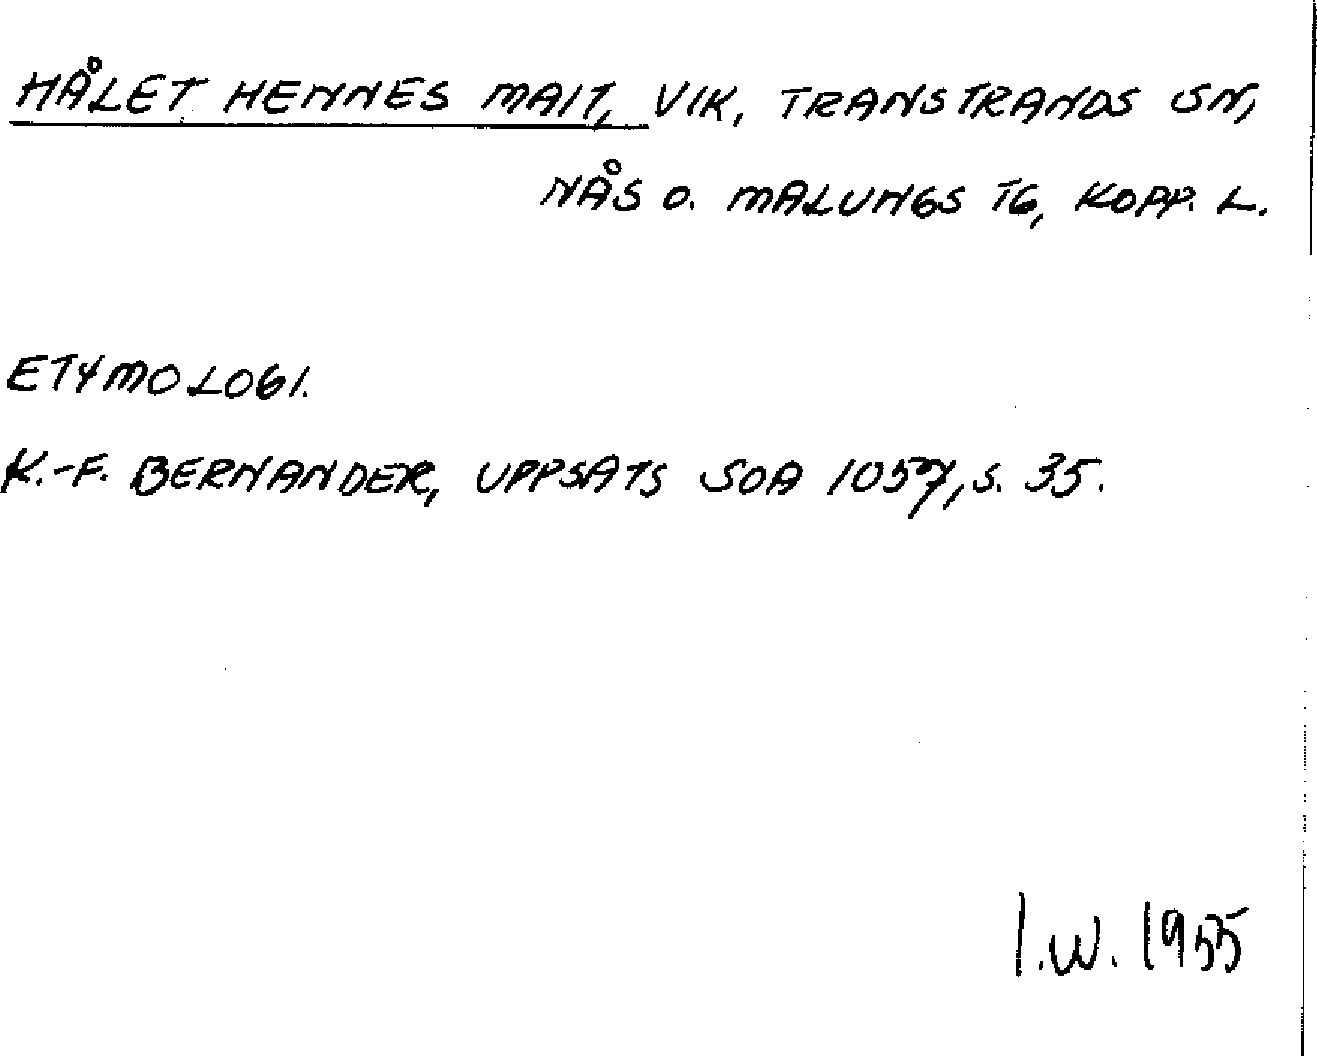 HÅLET HENNES MAIT, VIK, TRANSTRANDS SN,
NÅS O. MALUNGS TG, KOPP. L.
ETYMOLOGI.
K.-F. BERNANDER, UPPSATS SOA 1057, S. 35.
I.W. 1955